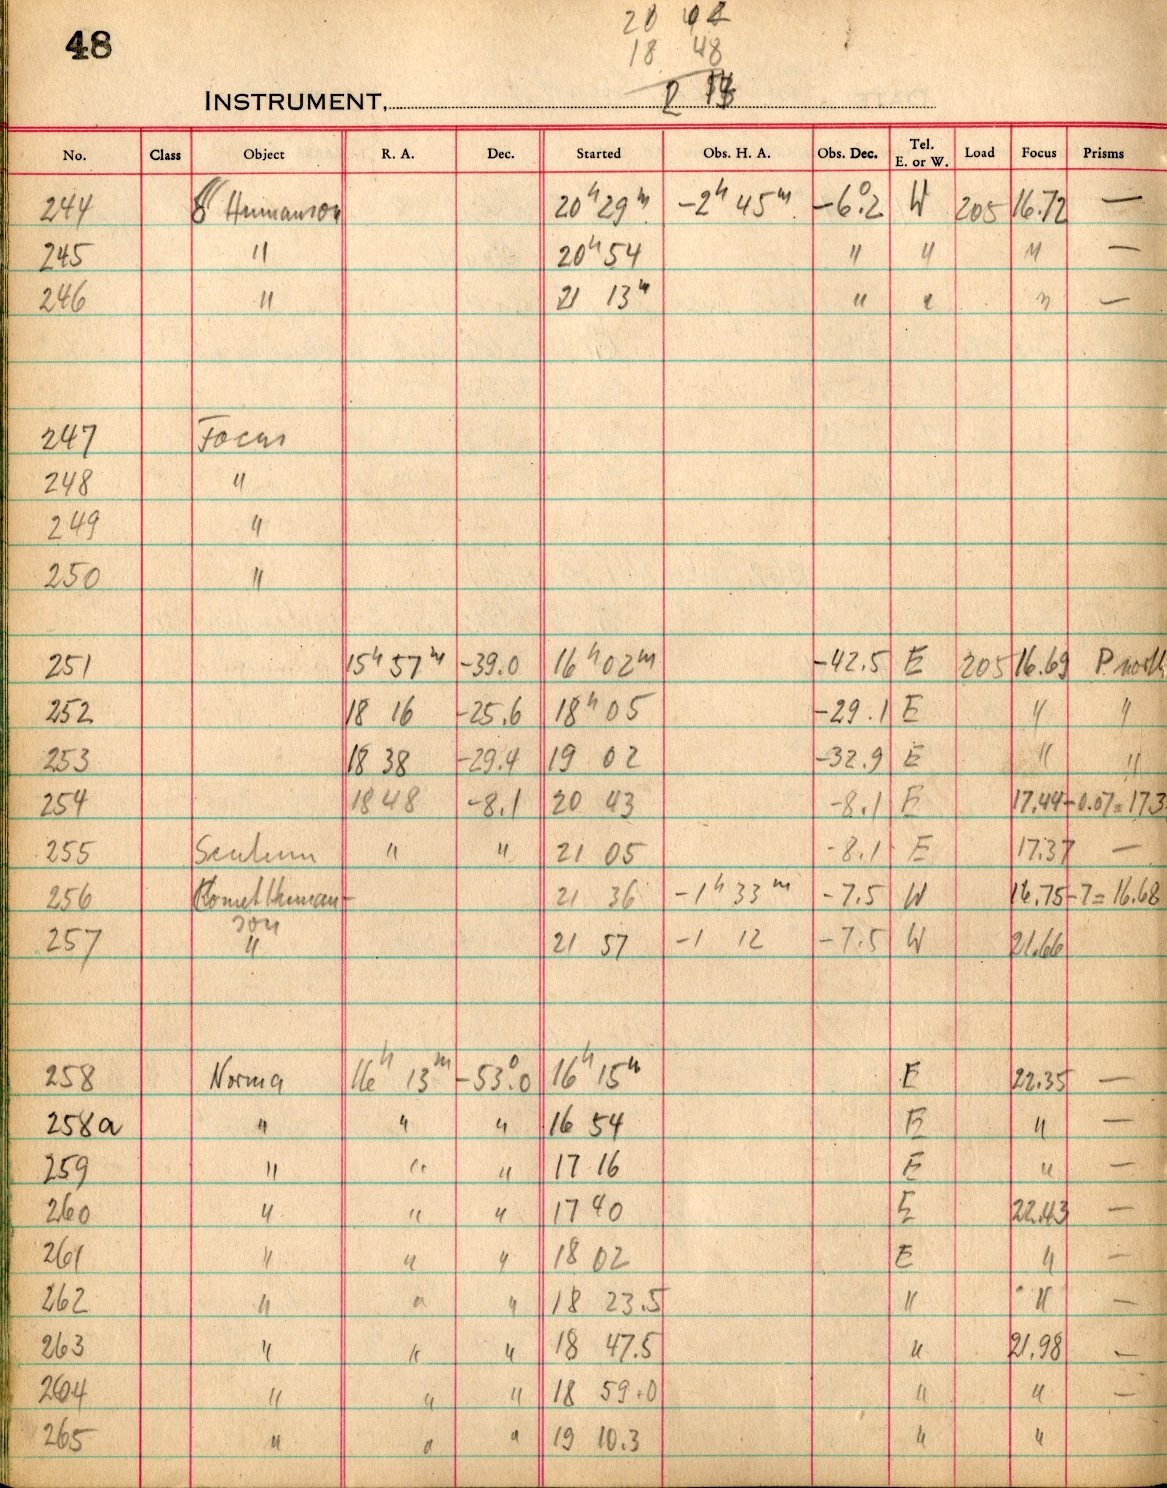 48
18 48
INSTRUMENT,
No. Class Object R. A. Dec. Started Obs. H. A. Obs. Dec. Tel. E. or W. Load Focus Prisms
244 Humanson 20h 29m -2h 45m -6°.2 W 205 16.72 —
245 " 20h 54 " " " —
246 " 21 13m " " " —
247 Focus
248 "
249 "
250 "
251 15h 57m -39.0 16h 02m -42.5 E 205 16.69 P. north
252 18 16 -25.6 18h 05 -29.1 E " "
253 18 38 -29.4 19 02 -32.9 E " "
254 18 48 -8.1 20 43 -8.1 E 17.44-0.07=17.3
255 Scutum " " 21 05 -8.1 E 17.37 —
256 Comet Human- 21 36 -1h 33m -7.5 W 16.75-7=16.68
son
257 " 21 57 -1 12 -7.5 W 21.66
258 Norma 16h 13m -53°.0 16h 15m E 22.35 —
258a " " " 16 54 E " —
259 " " " 17 16 E " —
260 " " " 17 40 E 22.43 —
261 " " " 18 02 E " —
262 " " " 18 23.5 " " —
263 " " " 18 47.5 " 21.98 —
264 " " " 18 59.0 " " —
265 " " " 19 10.3 " "